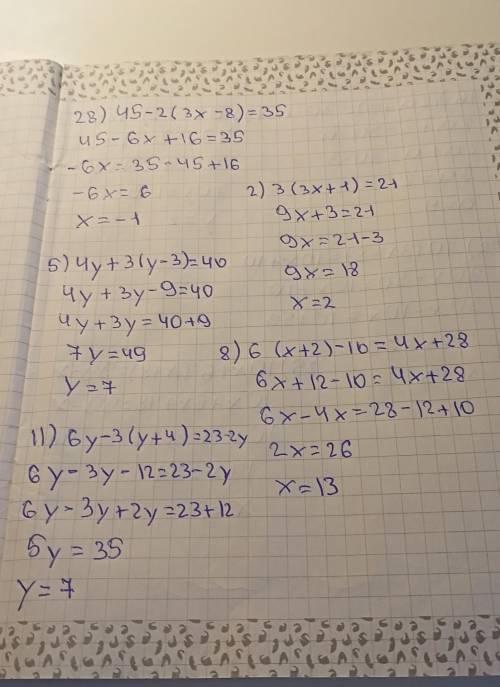 28) 45-2(3x-8)=35
45-6x+16=35
-6x=35-45+16
-6x=6
x=-1
2) 3(3x+1)=21
9x+3=21
9x=21-3
9x=18
x=2
5) 4y+3(y-3)=40
4y+3y-9=40
4y+3y=40+9
7y=49
y=7
8) 6 (x+2)-10=4x+28
6x+12-10=4x+28
6x-4x=28-12+10
2x=26
x=13
11) 6y-3(y+4)=23-2y
6y-3y-12=23-2y
6y-3y+2y=23+12
5y=35
y=7